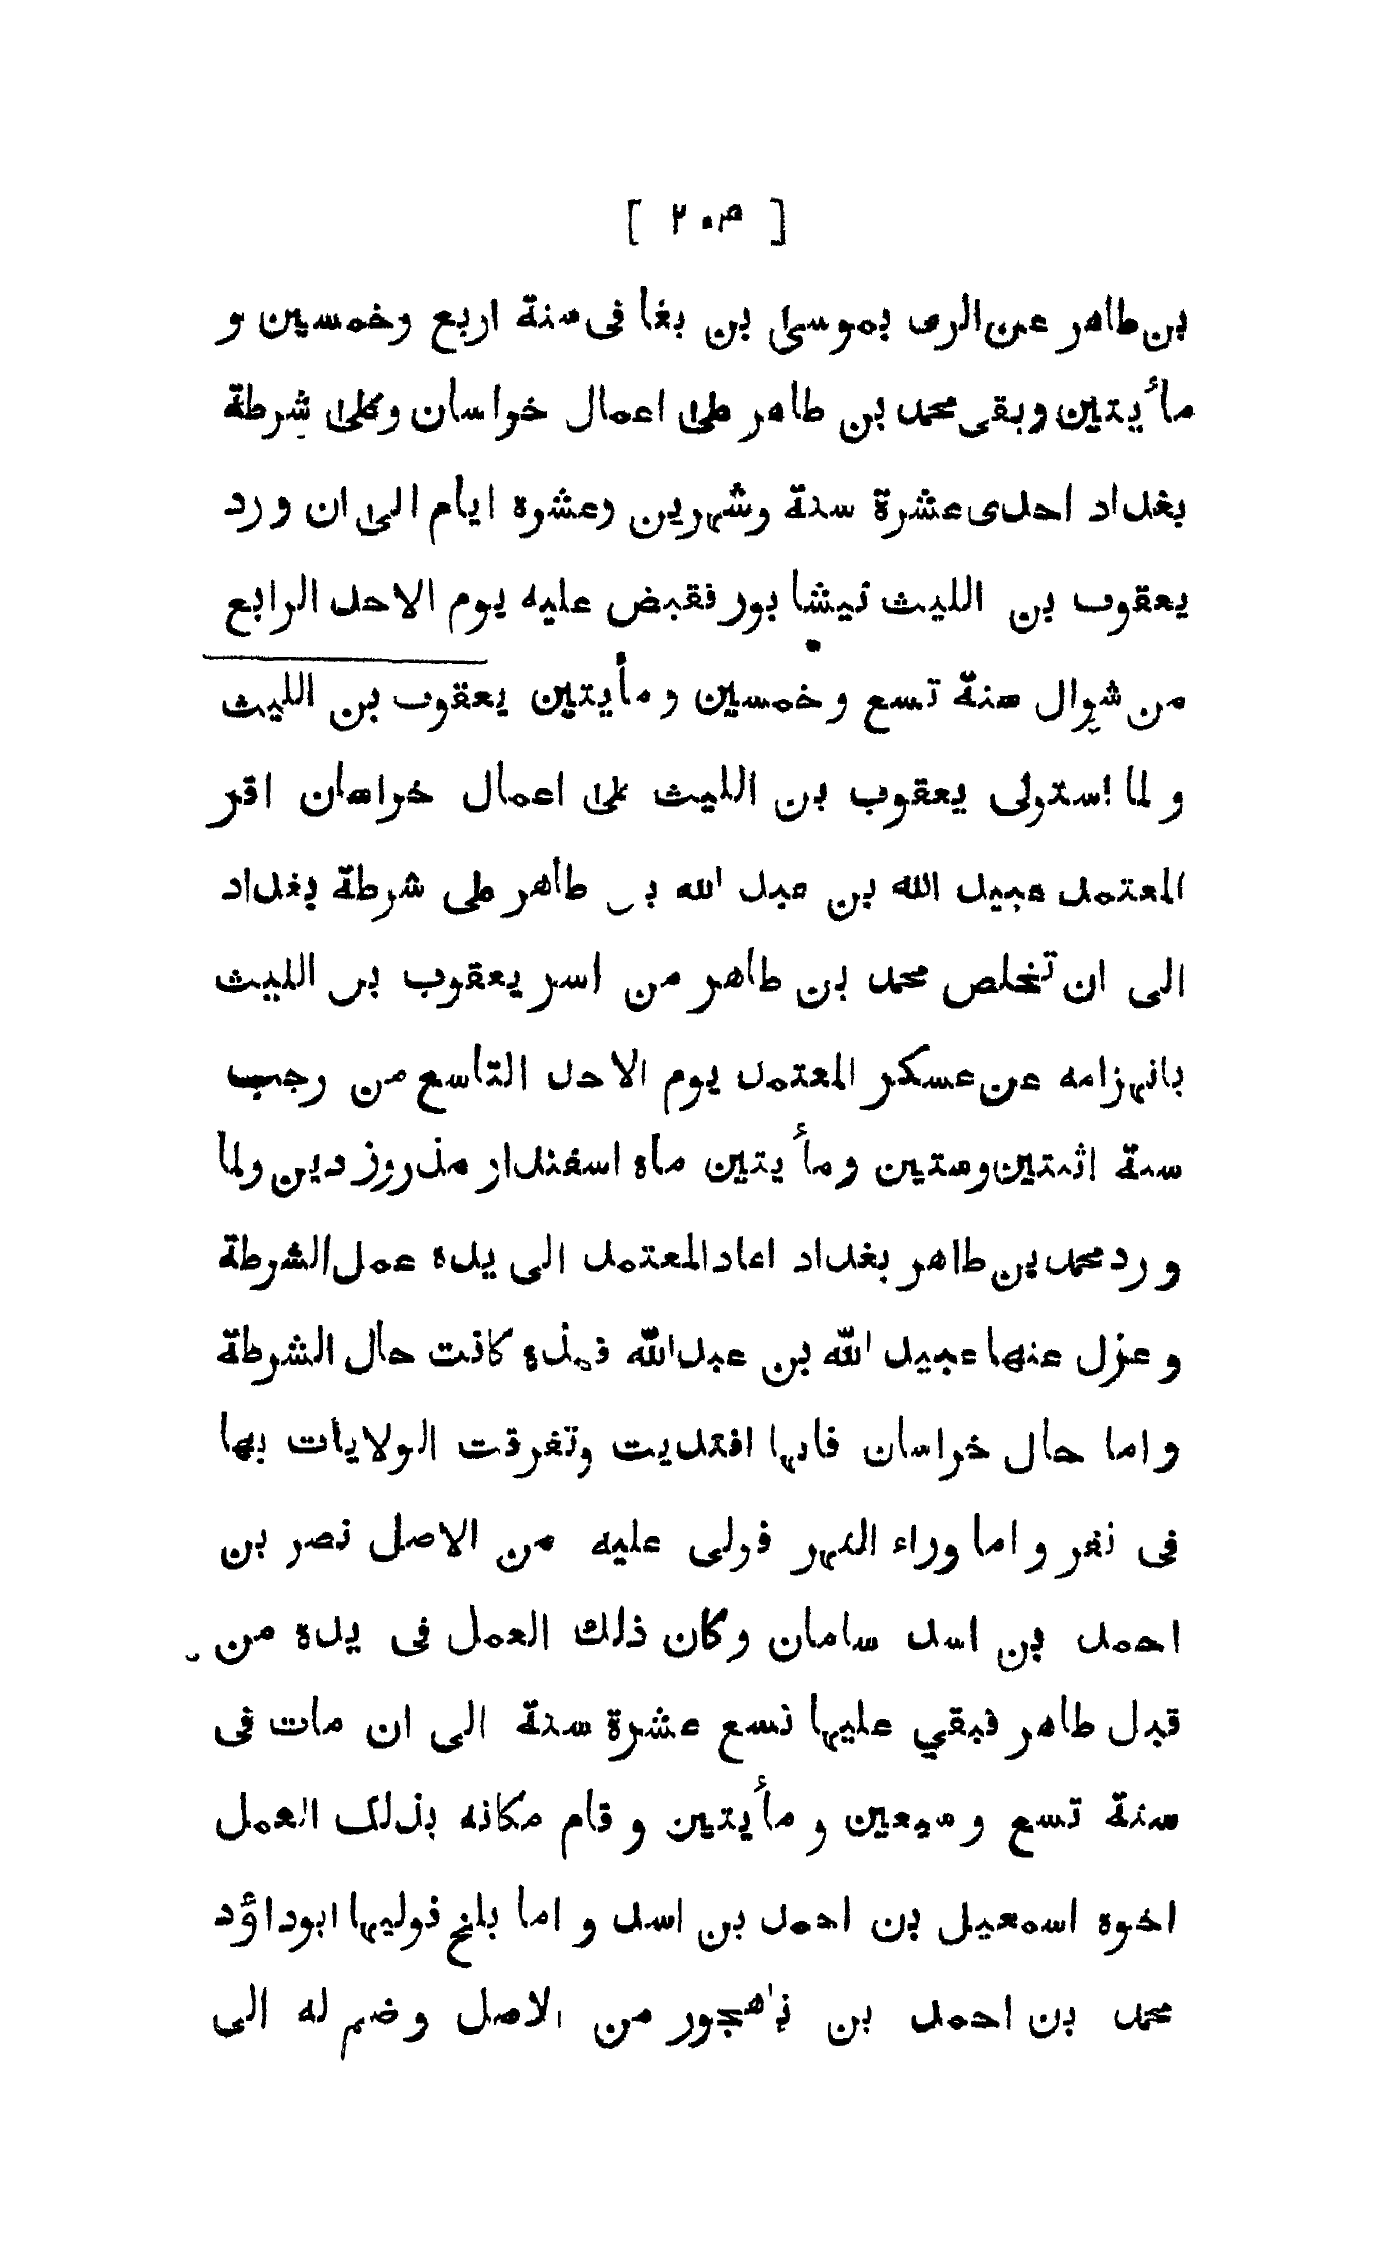 [ ٢٠٣ ]
بن طاهر عن الرى بموسى بن بغا فى سنة اربع وخمسين و
مأيتين وبقى محمد بن طاهر على اعمال خراسان وعلى شرطة
بغداد احدى عشرة سنة وشهرين وعشرة ايام الى ان ورد
يعقوب بن الليث نيشابور فقبض عليه يوم الاحد الرابع
من شوال سنة تسع وخمسين ومأيتين يعقوب بن الليث
ولما استولى يعقوب بن الليث على اعمال خراسان اقر
المعتمد عبيد الله بن عبد الله بن طاهر على شرطة بغداد
الى ان تخلص محمد بن طاهر من اسر يعقوب بن الليث
بانهزامه عن عسكر المعتمد يوم الاحد التاسع من رجب
سنة اثنتين وستين ومأيتين ماه اسفندار مذ روز دين ولما
ورد محمد بن طاهر بغداد اعاد المعتمد الى يده عمل الشرطة
وعزل عنها عبيد الله بن عبد الله فهذه كانت حال الشرطة
واما حال خراسان فانها افتديت وتفرقت الولايات بها
فى نفر واما وراء النهر فولى عليه من الاصل نصر بن
احمد بن اسد سامان وكان ذلك العمل فى يده من
قبل طاهر فبقي عليها تسع عشرة سنة الى ان مات فى
سنة تسع وسبعين ومأيتين وقام مكانه بذلك العمل
اخوه اسمعيل بن احمد بن اسد واما بلخ فوليها ابوداؤد
محمد بن احمد بن باهجور من الاصل وضم له الى